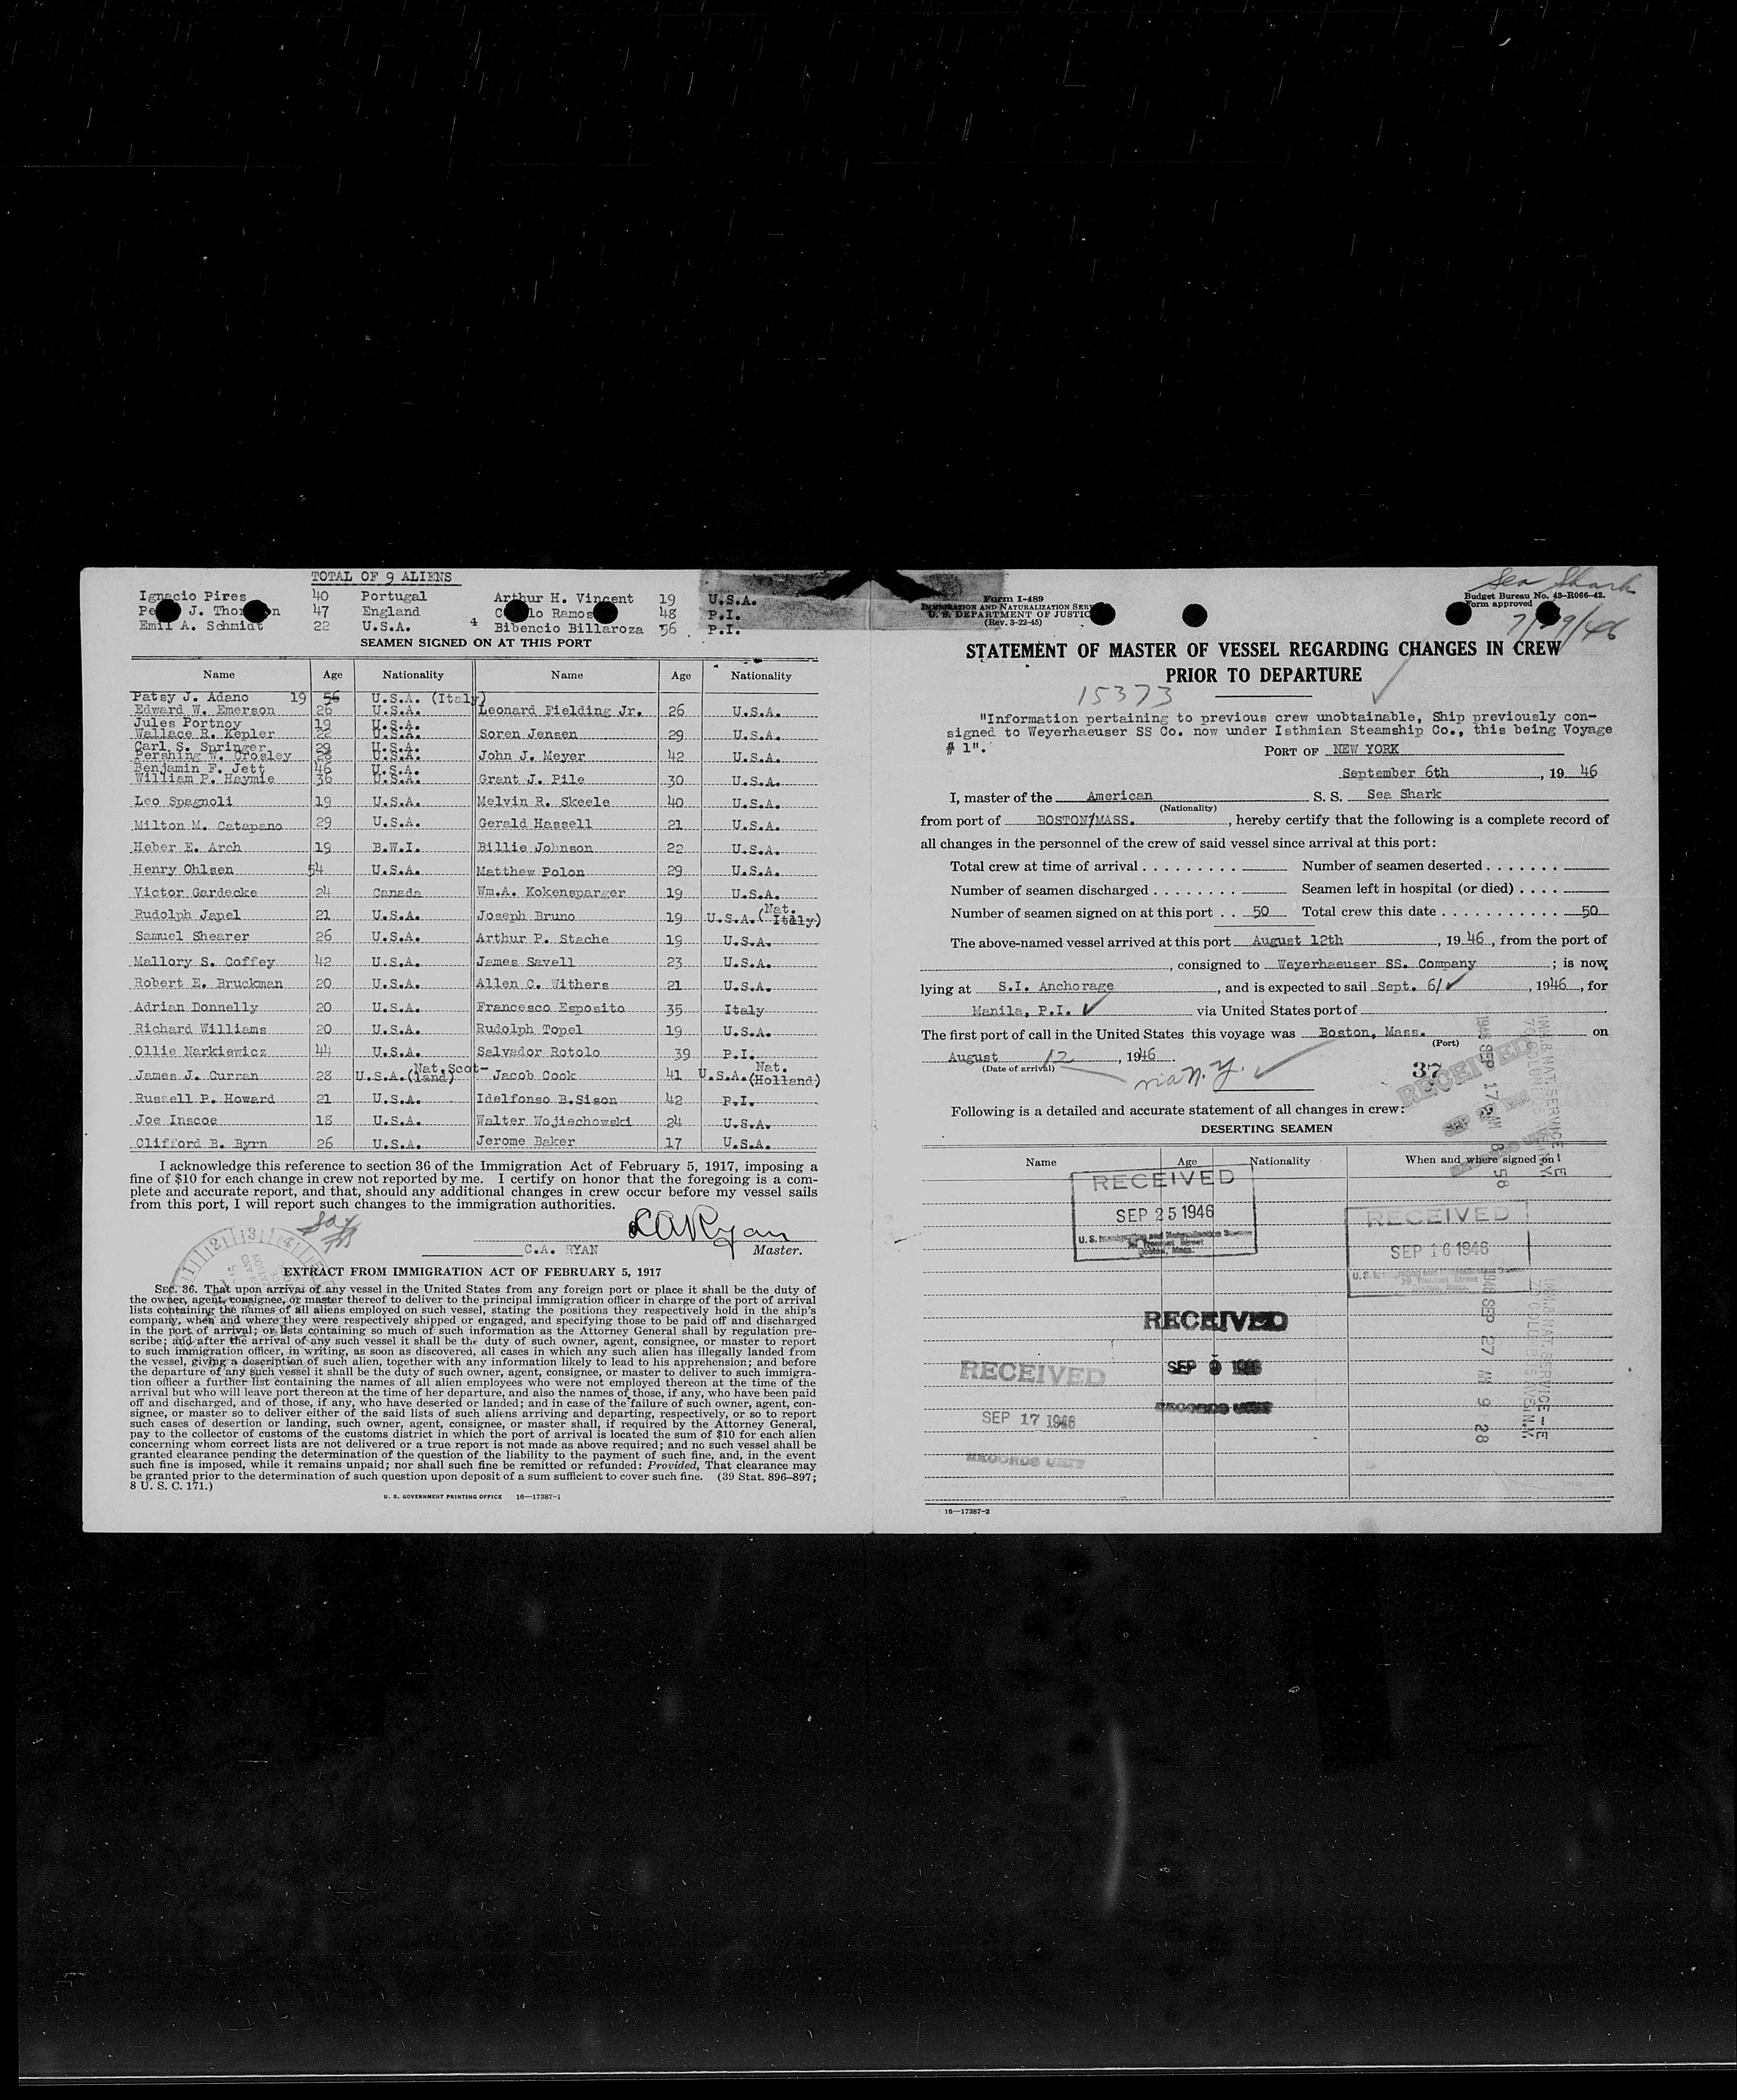 TOTAL OF 9 ALIENS
Ignacio Pires 40 Portugal Arthur H. Vincent 19 U.S.A.
J. 47 England Ramos 48 P.I.
Emil A. Schmidt 22 U.S.A. 4 Bibencio Billaroza 56 P.I.
SEAMEN SIGNED ON AT THIS PORT
Name Age Nationality Name Age Nationality
Patsy J. Adano 19 56 U.S.A. (Italy)
Edward W. Emerson 26 U.S.A. Leonard Fielding Jr. 26 U.S.A.
Jules Portnoy 19 U.S.A.
Wallace R. Kepler 22 U.S.A. Soren Jensen 29 U.S.A.
Carl S. Springer 29 U.S.A.
Pershing W. Crosley 28 U.S.A. John J. Meyer 42 U.S.A.
Benjamin F. Jett 46 U.S.A.
William P. Haymie 36 U.S.A. Grant J. Pile 30 U.S.A.
Leo Spagnoli 19 U.S.A. Melvin R. Skeele 40 U.S.A.
Milton M. Catapano 29 U.S.A. Gerald Hassell 21 U.S.A.
Heber E. Arch 19 B.W.I. Billie Johnson 22 U.S.A.
Henry Ohlsen 54 U.S.A. Matthew Polon 29 U.S.A.
Victor Gardecke 24 Canada Wm.A. Kokensparger 19 U.S.A.
Rudolph Japel 21 U.S.A. Joseph Bruno 19 U.S.A.(Nat. Italy)
Samuel Shearer 26 U.S.A. Arthur P. Stache 19 U.S.A.
Mallory S. Coffey 42 U.S.A. James Savell 23 U.S.A.
Robert E. Bruckman 20 U.S.A. Allen C. Withers 21 U.S.A.
Adrian Donnelly 20 U.S.A. Francesco Esposito 35 Italy
Richard Williams 20 U.S.A. Rudolph Topel 19 U.S.A.
Ollie Narkiewicz 44 U.S.A. Salvador Rotolo 39 P.I.
James J. Curran 28 U.S.A.(Nat.Scot-land) Jacob Cook 41 U.S.A.(Nat. Holland)
Russell P. Howard 21 U.S.A. Idelfonso B.Sison 42 P.I.
Joe Inscoe 18 U.S.A. Walter Wojiechowski 24 U.S.A.
Clifford B. Byrn 26 U.S.A. Jerome Baker 17 U.S.A.
I acknowledge this reference to section 36 of the Immigration Act of February 5, 1917, imposing a
fine of $10 for each change in crew not reported by me. I certify on honor that the foregoing is a com-
plete and accurate report, and that, should any additional changes in crew occur before my vessel sails
from this port, I will report such changes to the immigration authorities.
CARyan
C.A. RYAN Master.
EXTRACT FROM IMMIGRATION ACT OF FEBRUARY 5, 1917
SEC. 36. That upon arrival of any vessel in the United States from any foreign port or place it shall be the duty of
the owner, agent, consignee, or master thereof to deliver to the principal immigration officer in charge of the port of arrival
lists containing the names of all aliens employed on such vessel, stating the positions they respectively hold in the ship's
company, when and where they were respectively shipped or engaged, and specifying those to be paid off and discharged
in the port of arrival; or lists containing so much of such information as the Attorney General shall by regulation pre-
scribe; and after the arrival of any such vessel it shall be the duty of such owner, agent, consignee, or master to report
to such immigration officer, in writing, as soon as discovered, all cases in which any such alien has illegally landed from
the vessel, giving a description of such alien, together with any information likely to lead to his apprehension; and before
the departure of any such vessel it shall be the duty of such owner, agent, consignee, or master to deliver to such immigra-
tion officer a further list containing the names of all alien employees who were not employed thereon at the time of the
arrival but who will leave port thereon at the time of her departure, and also the names of those, if any, who have been paid
off and discharged, and of those, if any, who have deserted or landed; and in case of the failure of such owner, agent, con-
signee, or master so to deliver either of the said lists of such aliens arriving and departing, respectively, or so to report
such cases of desertion or landing, such owner, agent, consignee, or master shall, if required by the Attorney General,
pay to the collector of customs of the customs district in which the port of arrival is located the sum of $10 for each alien
concerning whom correct lists are not delivered or a true report is not made as above required; and no such vessel shall be
granted clearance pending the determination of the question of the liability to the payment of such fine, and, in the event
such fine is imposed, while it remains unpaid; nor shall such fine be remitted or refunded: Provided, That clearance may
be granted prior to the determination of such question upon deposit of a sum sufficient to cover such fine. (39 Stat. 896–897;
8 U. S. C. 171.)
U. S. GOVERNMENT PRINTING OFFICE 16—17387-1
Sea Shark
Form I-489
IMMIGRATION AND NATURALIZATION SERV
U. S. DEPARTMENT OF JUSTIC
(Rev. 3-22-45)
Budget Bureau No. 43-R066-42.
Form approved
STATEMENT OF MASTER OF VESSEL REGARDING CHANGES IN CREW
PRIOR TO DEPARTURE
15373
"Information pertaining to previous crew unobtainable, Ship previously con-
signed to Weyerhaeuser SS Co. now under Isthmian Steamship Co., this being Voyage
# 1".
PORT OF NEW YORK
September 6th, 19 46
I, master of the American S. S. Sea Shark
(Nationality)
from port of BOSTON/MASS., hereby certify that the following is a complete record of
all changes in the personnel of the crew of said vessel since arrival at this port:
Total crew at time of arrival . . . . . . . . . Number of seamen deserted . . . . . . .
Number of seamen discharged . . . . . . . . Seamen left in hospital (or died) . . . .
Number of seamen signed on at this port . . 50 Total crew this date . . . . . . . . . . . 50
The above-named vessel arrived at this port August 12th, 19 46, from the port of
, consigned to Weyerhaeuser SS. Company; is now
lying at S.I. Anchorage, and is expected to sail Sept. 6/, 1946, for
Manila, P.I. via United States port of
The first port of call in the United States this voyage was Boston, Mass. on
(Port)
August 12, 1946.
(Date of arrival)
via N.Y.
37
Following is a detailed and accurate statement of all changes in crew:
DESERTING SEAMEN
Name Age Nationality When and where signed on
RECEIVED
SEP 25 1946
U. S. Immigration and Naturalization Service
Tremont Street
Boston, Mass.
RECEIVED
SEP 16 1946
RECEIVED
SEP 9 1946
RECORDS UNIT
RECEIVED
SEP 17 1946
RECORDS UNIT
1946 SEP 17 AM 8 58
1946 SEP 27 AM 9 28
16—17387-2